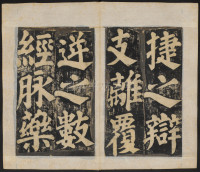 捷之辯
支離覆
逆之數
經脉欒